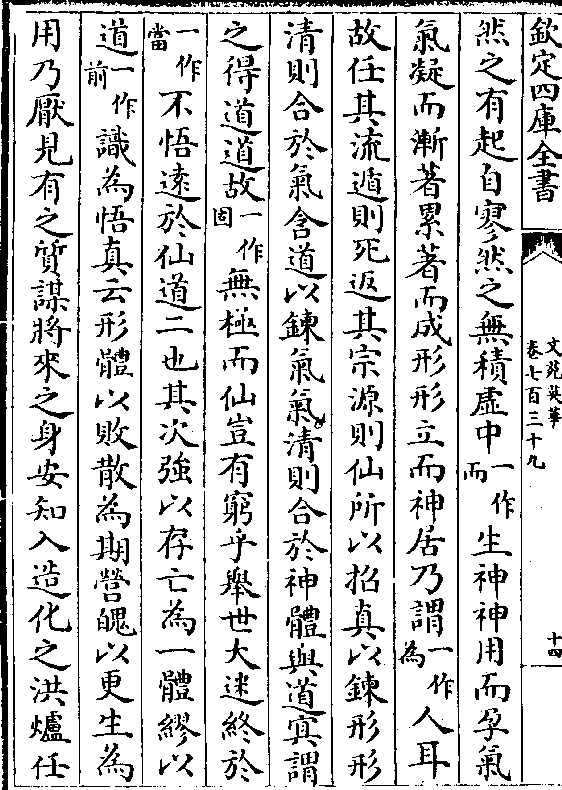 欽定四庫全書
文苑英華
卷七百三十九
十四
然之有起自寥然之無積虚中一作而生神神用而孕氣
氣凝而漸著累著而成形形立而神居乃謂一作為人耳
故任其流遁則死返其宗源則仙所以招真以鍊形形
清則合於氣含道以鍊氣氣清則合於神體與道㝠謂
之得道道故一作固無極而仙豈有窮乎舉世大迷終於
一作當不悟逺於仙道二也其次強以存亡為一體繆以
道一作前識為悟真云形體以敗散為期營魄以更生為
用乃厭見有之質謀將來之身安知入造化之洪爐任